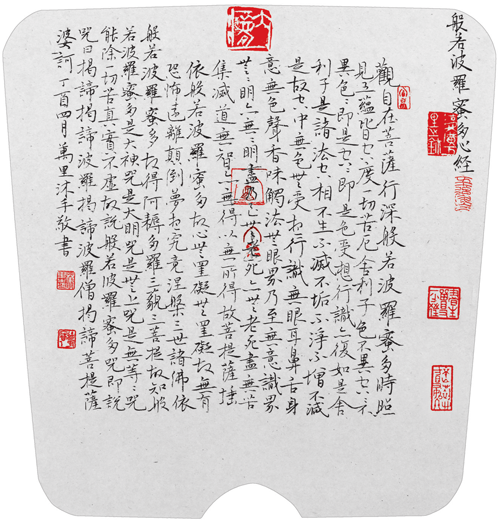 般若波羅蜜多心經
觀自在菩薩行深般若波羅蜜多時照
見五蘊皆空度一切苦厄舍利子色不異空空不
異色色即是空空即是色受想行識亦復如是舍
利子是諸法空相不生不滅不垢不淨不增不減
是故空中無色無受想行識無眼耳鼻舌身
意無色聲香味觸法無眼界乃至無意識界
無無明亦無無明盡乃至無老死亦無老死盡無苦
集滅道無智亦無得以無所得故菩提薩埵
依般若波羅蜜多故心無罣礙無罣礙故無有
恐怖遠離顛倒夢想究竟涅槃三世諸佛依
般若波羅蜜多故得阿耨多羅三藐三菩提故知般
若波羅蜜多是大神咒是大明咒是無上咒是無等等咒
能除一切苦真實不虛故說般若波羅蜜多咒即說
咒曰揭諦揭諦波羅揭諦波羅僧揭諦菩提薩
婆訶 丁酉四月萬里沐手敬書